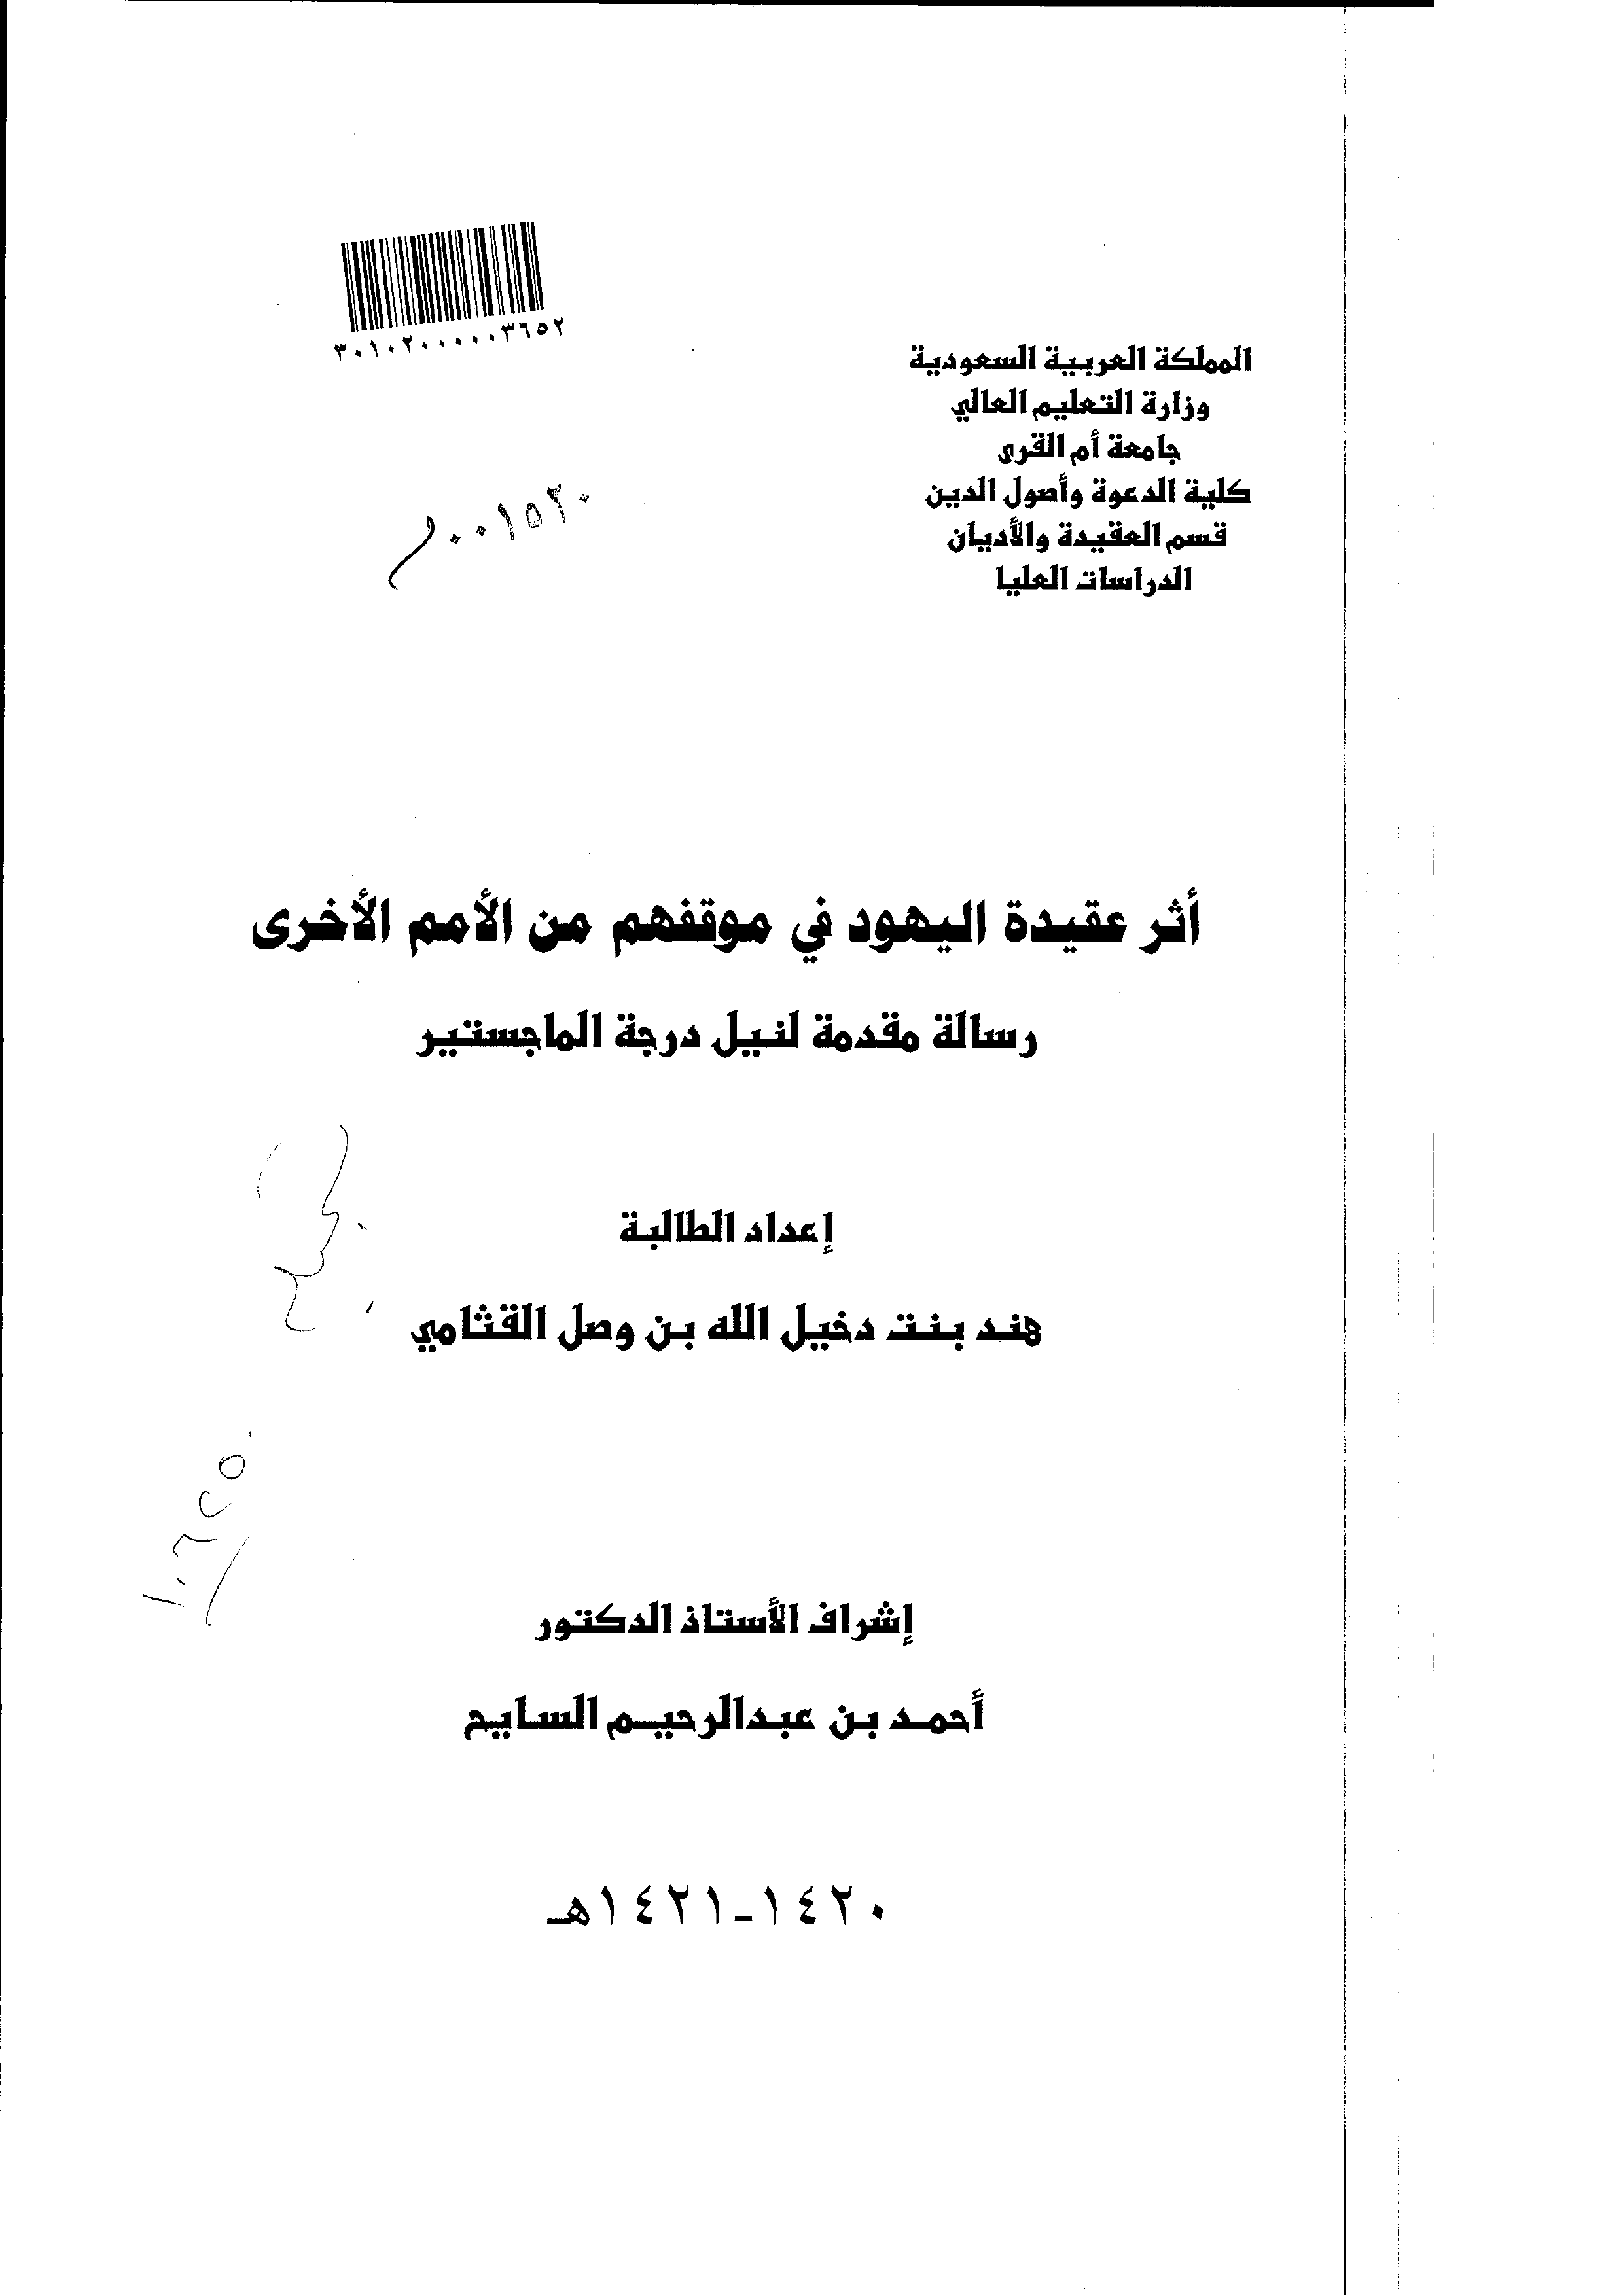 المملكة العربية السعودية
وزارة التعليم العالي
جامعة أم القرى
كلية الدعوة وأصول الدين
قسم العقيدة والأديان
الدراسات العليا
٣٠١٠٢٠٠٠٠٠٣٦٥٢
٠٠١٥٢٠
أثر عقيدة اليهود في موقفهم من الأمم الأخرى
رسالة مقدمة لنيل درجة الماجستير
إعداد الطالبة
هند بنت دخيل الله بن وصل القثامي
إشراف الأستاذ الدكتور
أحمد بن عبدالرحيم السايح
١٤٢٠-١٤٢١هـ